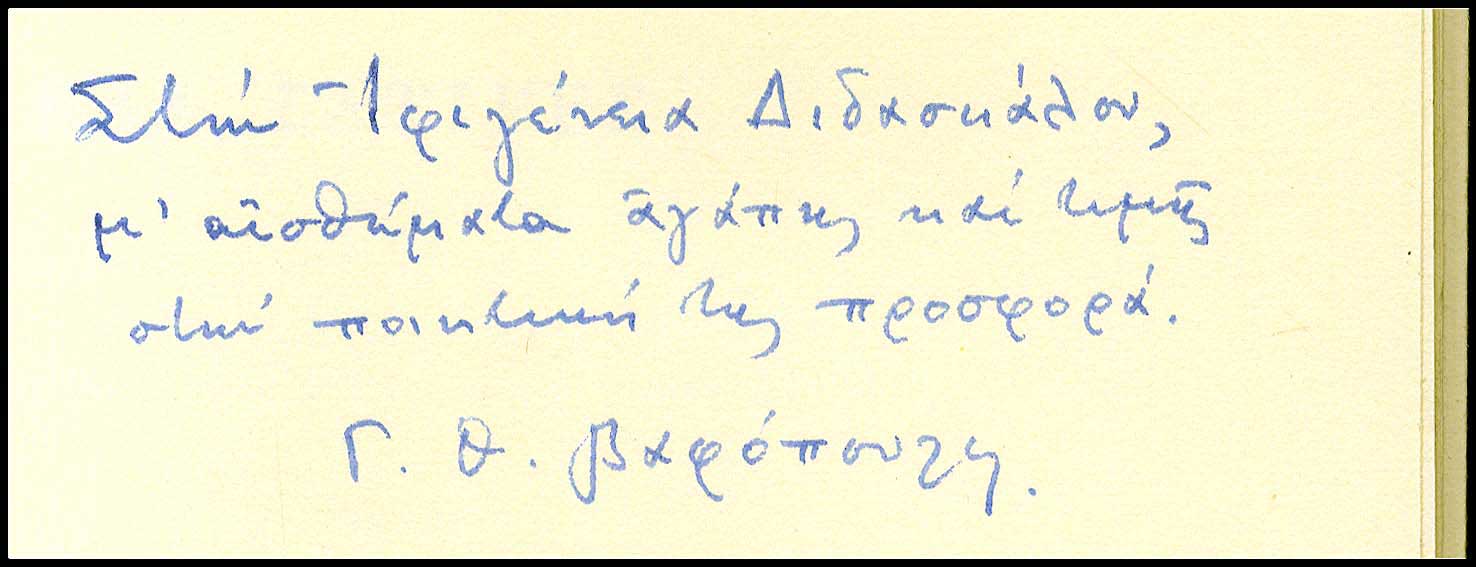 Στήν Ἰφιγένεια Διδασκάλου,
μ' αἰσθήματα ἀγάπης καί τιμῆς
στήν ποιητική της προσφορά.
Γ. Θ. Βαφόπουλος.